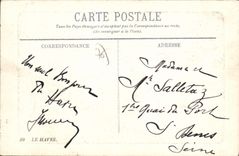 CARTE POSTALE
Tous les Pays étrangers n'acceptent pas la Correspondance au recto
(Se renseigner à la Poste)
CORRESPONDANCE
ADRESSE
Un seul bonjour
du Havre
Madame
1 Quai du Port
St Denis
Seine
LE HAVRE.